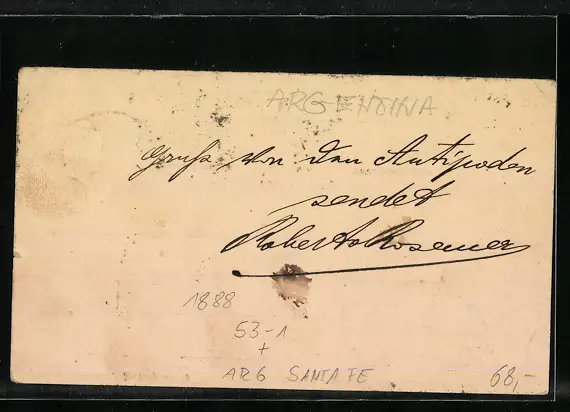 ARGENTINA
Gruß von den Antipoden
sendet
Roberto Rosemer
1888
53-1
+
ARG SANTA FE
68,-